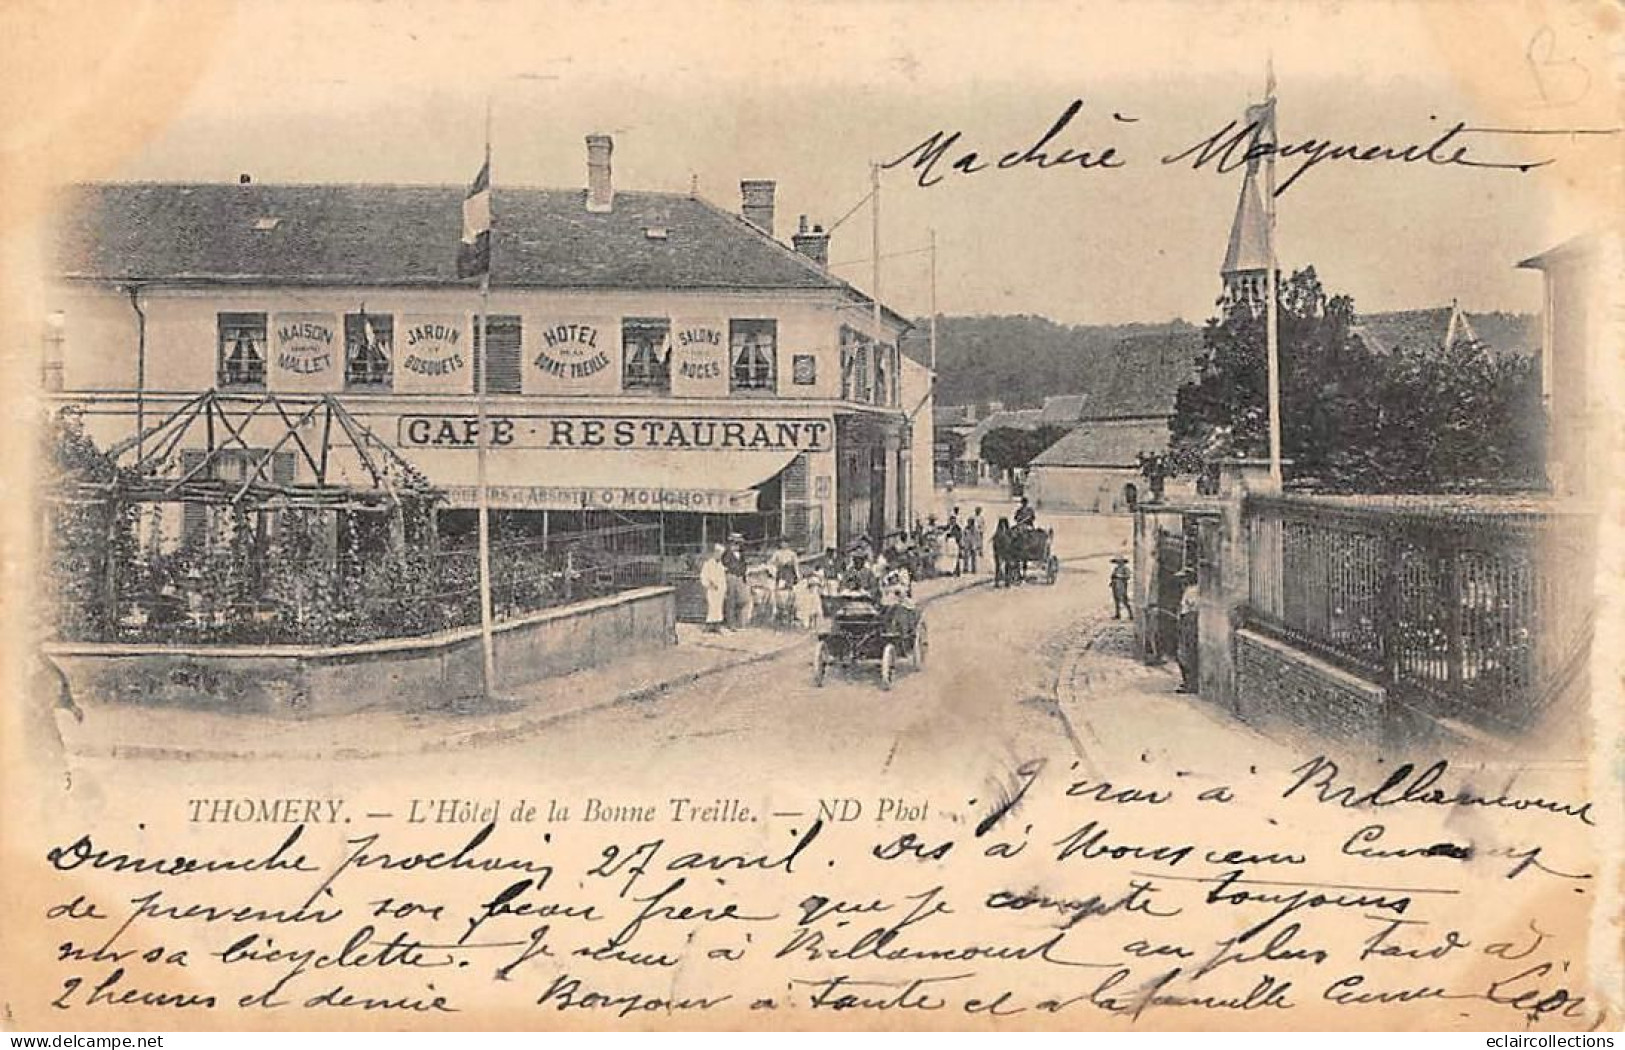 Ma chère Marguerite
MAISON
MALLET
JARDIN
ET
BOSQUETS
HOTEL
DE LA
BONNE TREILLE
SALONS
NOCES
CAFÉ - RESTAURANT
ABSINTHE O MOUCHOTTE
3
THOMERY. — L'Hôtel de la Bonne Treille. — ND Phot
J'irai à Billancourt
Dimanche prochain 27 avril. Dis à Monsieur
de prevenir son beau frère que je compte toujours
sur sa bicyclette. Je serai à Billancourt au plus tard à
2 heures et demie Bonjour à Tante et a la famille
B
delcampe.net
eclaircollections